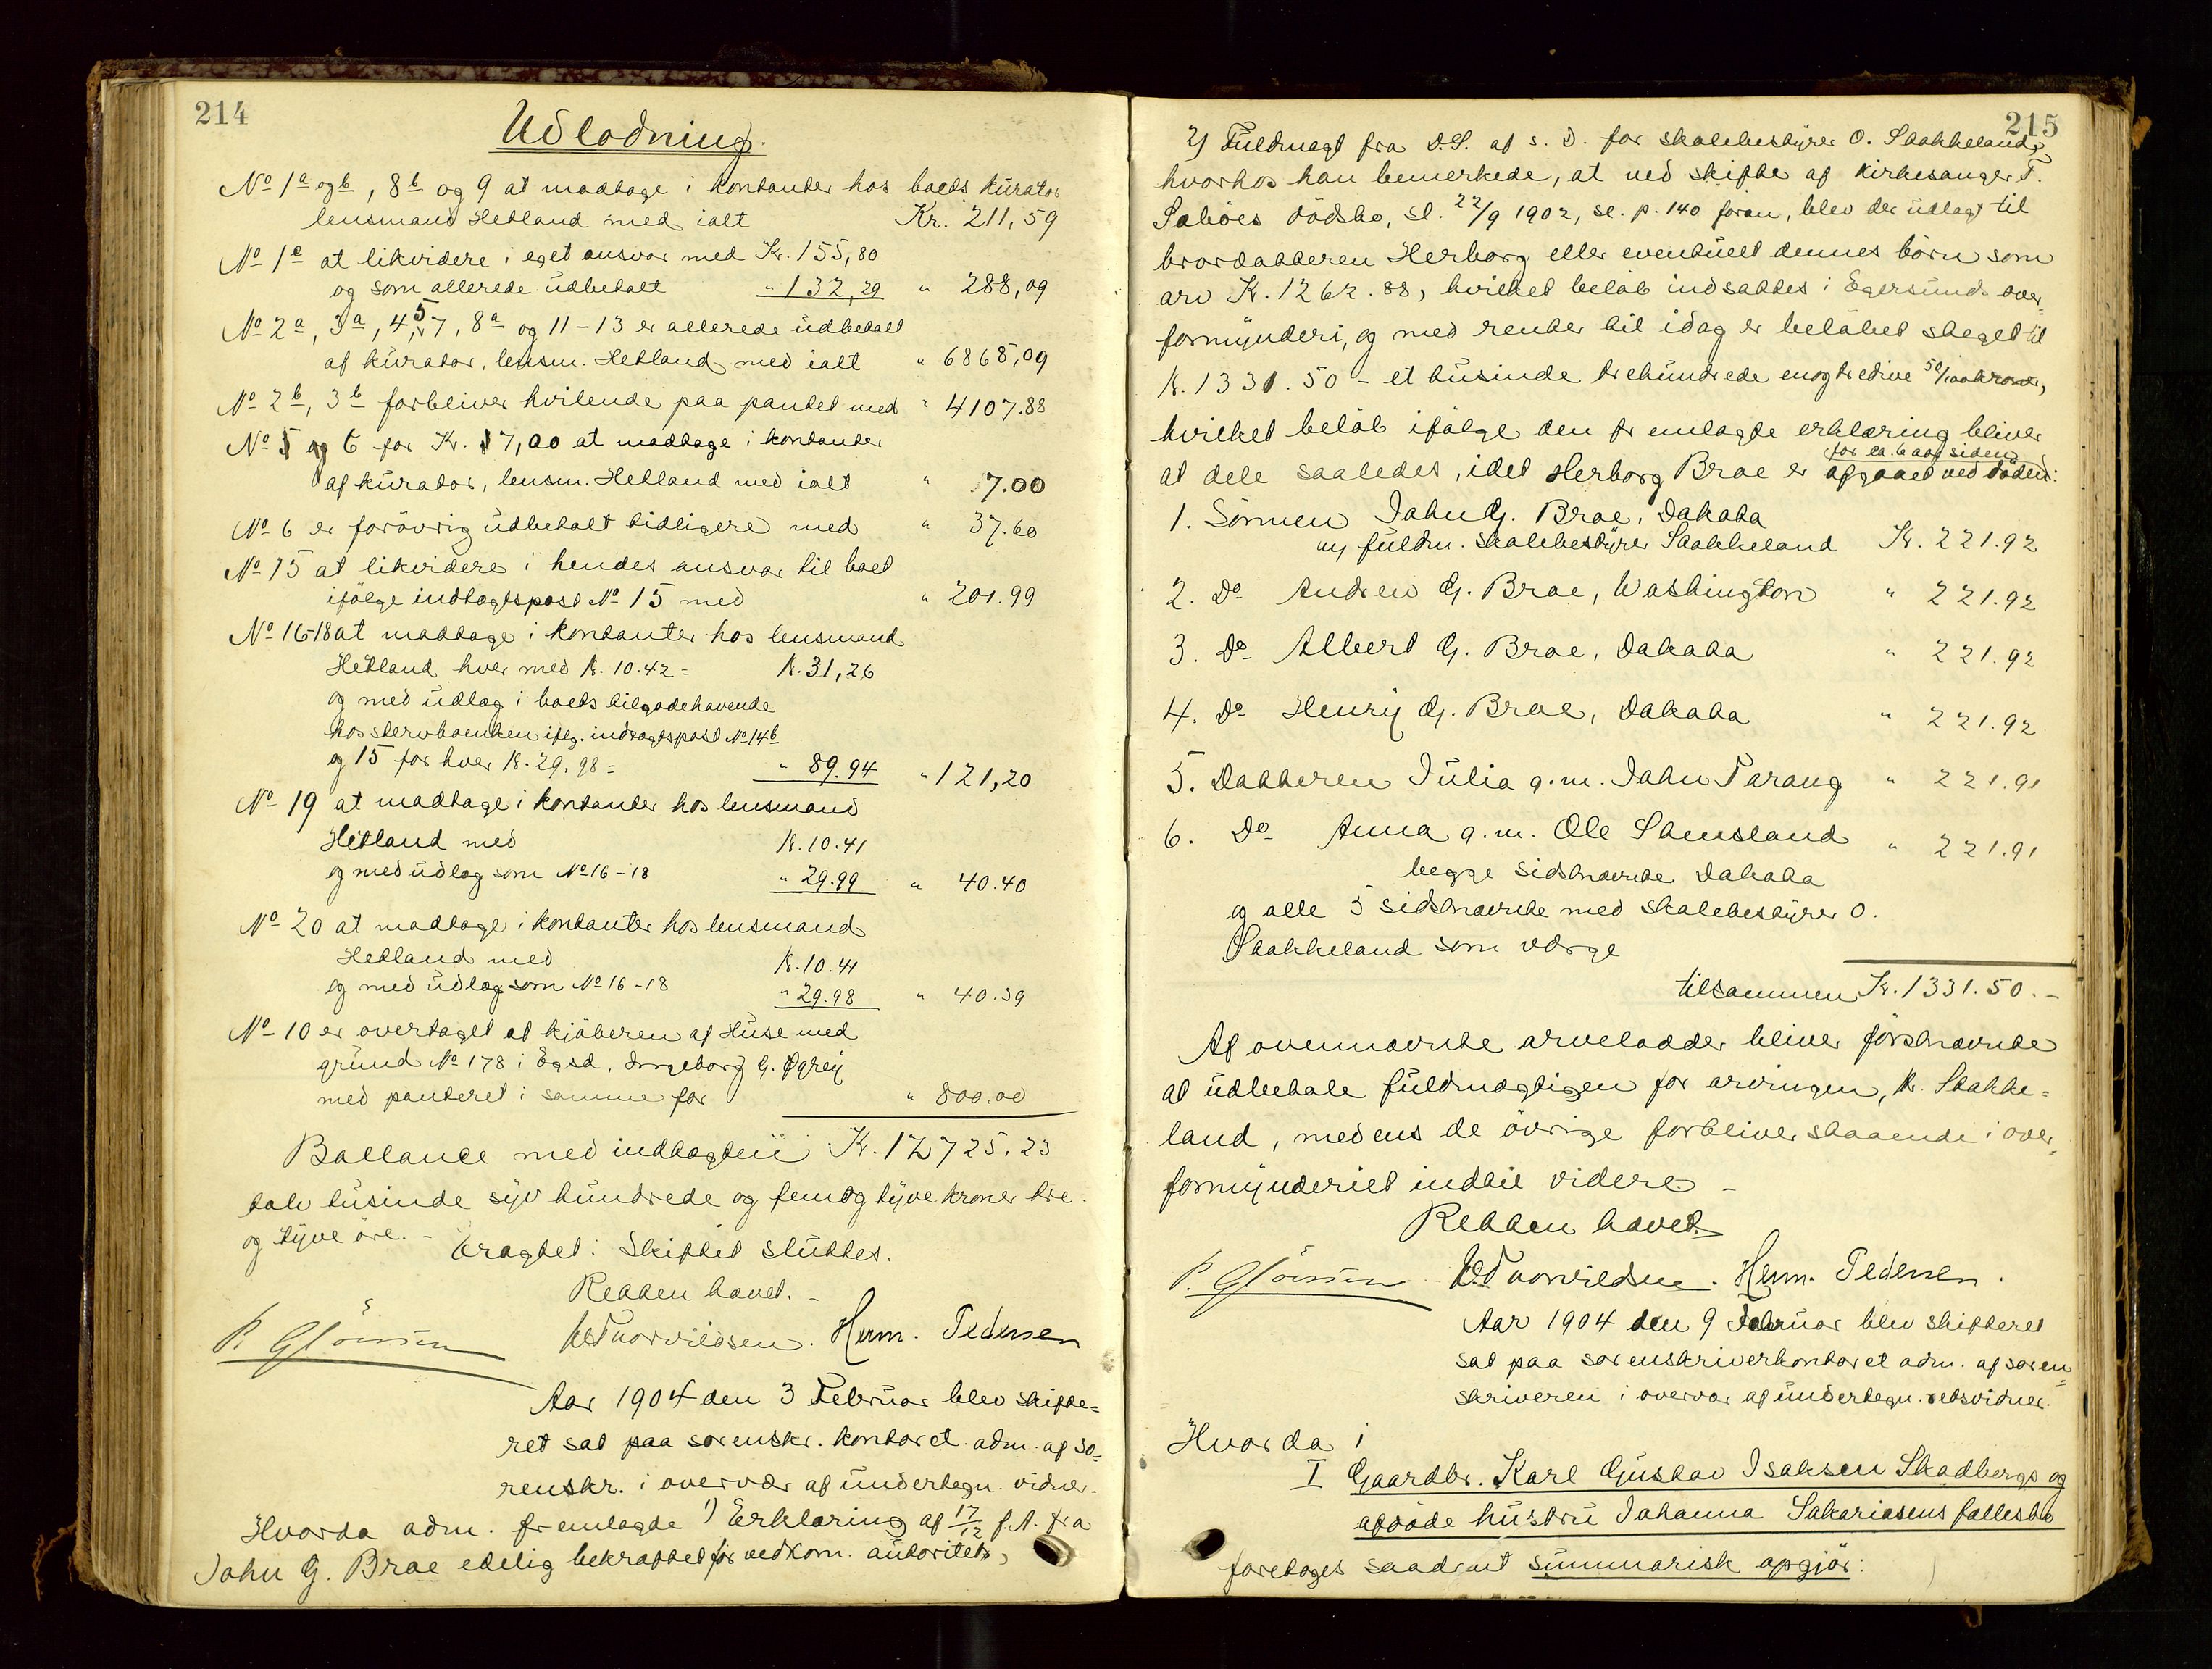 214
Udlodning.
No 1a og b, 8b og 9 at modtage i kontanter hos boets kurator
lensmand Hetland med ialt Kr. 211,59
No 1c at likvidere i eget ansvar med Kr. 155,80
og som allerede udbetalt " 132,29 " 288,09
No 2a, 3a, 4, 5, 7, 8a og 11-13 er allerede udbetalt
af kurator, lensm. Hetland med ialt " 6865,09
No 2b, 3b forbliver hvilende paa pantet med " 4107.88
No 5 og 6 for Kr. 7,00 at modtage i kontanter
af kurator, lensm. Hetland med ialt " 7.00
No 6 er forövrig udbetalt tidligere med " 37.60
No 15 at likvidere i hendes ansvar til boet
ifølge indtægtspost No 15 med " 201.99
No 16-18 at modtage i kontanter hos lensmand
Hetland hver med K. 10.42 = K. 31,26
og med udlæg i boets tilgodehavende
hos stervboenken iflg. indtægtspost No 14b
og 15 for hver K. 29.98 = " 89.94 " 121,20
No 19 at modtage i kontanter hos lensmand
Hetland med K. 10.41
og med udlæg som No 16-18 " 29.99 " 40.40
No 20 at modtage i kontanter hos lensmand
Hetland med K. 10.41
og med udlæg som No 16-18 " 29.98 " 40.39
No 10 er overtaget at kjöberen af Huse med
grund No 178 i Egsd, Ingeborg G. Ögrey
med panteret i samme for " 800.00
Ballance med indtægten Kr. 12725,23
tolv tusinde syv hundrede og femogtyve kroner tre
og tyve öre. - Eragtet: Skiftet sluttes.
Retten hævet. -
P. Glörsen W Torvildsen. Herm. Pedersen
Aar 1904 den 3 Februar blev skifte=
ret sat paa sorenskr. kontoret adm. af so=
renskr. i overvær af undertegn. vidner.
Hvorda adm. fremlagde 1) Erklæring af 17/12 f.A. fra
John G. Broe edelig bekræftet for vedkom. autoritet,
215
2) Fuldmagt fra D.S. af s. D. for skolebestyrer O. Stokkeland,
hvorhos han bemerkede, at ved skifte af kirkesanger T.
Seböes dödsbo, sl. 22/9 1902, se. p. 140 foran, blev der udlagt til
brordatteren Herborg eller eventuelt dennes börn som
arv K. 1262.88, hvilket belöb indsattes i Egersund over=
formynderi, og med renter til idag er belöbet steget til
K. 1331.50 - et tusinde trehundrede enogtredive 50/100 kroner,
hvilket belöb ifölge den fremlagte erklæring bliver
for ca. 6 aar siden
at dele saaledes, idet Herborg Broe er afgaaet ved döden:
1. Sönnen John G. Broe, Dakota
v/ fuldm. skolebestyrer Stokkeland Kr. 221.92
2. Do Andrew G. Broe, Washington " 221.92
3. Do Albert G. Broe, Dakota " 221.92
4. Do Henry G. Broe, Dakota " 221.92
5. Datteren Julia g.m. John Parang " 221.91
6. Do Anna g.m. Ole Stensland " 221.91
begge sidstnævnte Dakota
og alle 5 sidstnævnte med skolebestyrer O.
Stokkeland som værge
tilsammen Kr. 1331.50. -
Af ovennævnte arvelodder bliver förstnævnte
at udbetale fuldmægtigen for arvingen, hr. Stokke=
land, medens de övrige forbliver staaende i over=
formynderiet indtil videre -
Retten hævet.
P. Glörsen W Torvildsen. Herm. Pedersen.
Aar 1904 den 9 Februar blev skifteret
sat paa sorenskriverkontoret adm. af soren=
skriveren i overvær af undertegn. retsvidner.
Hvorda i
I Gaardbr. Karl Gustav Isaksen Skadbergs og
afdöde hustru Johanna Sakariasens fællesbo
foretoges saadant summarisk opgjör: